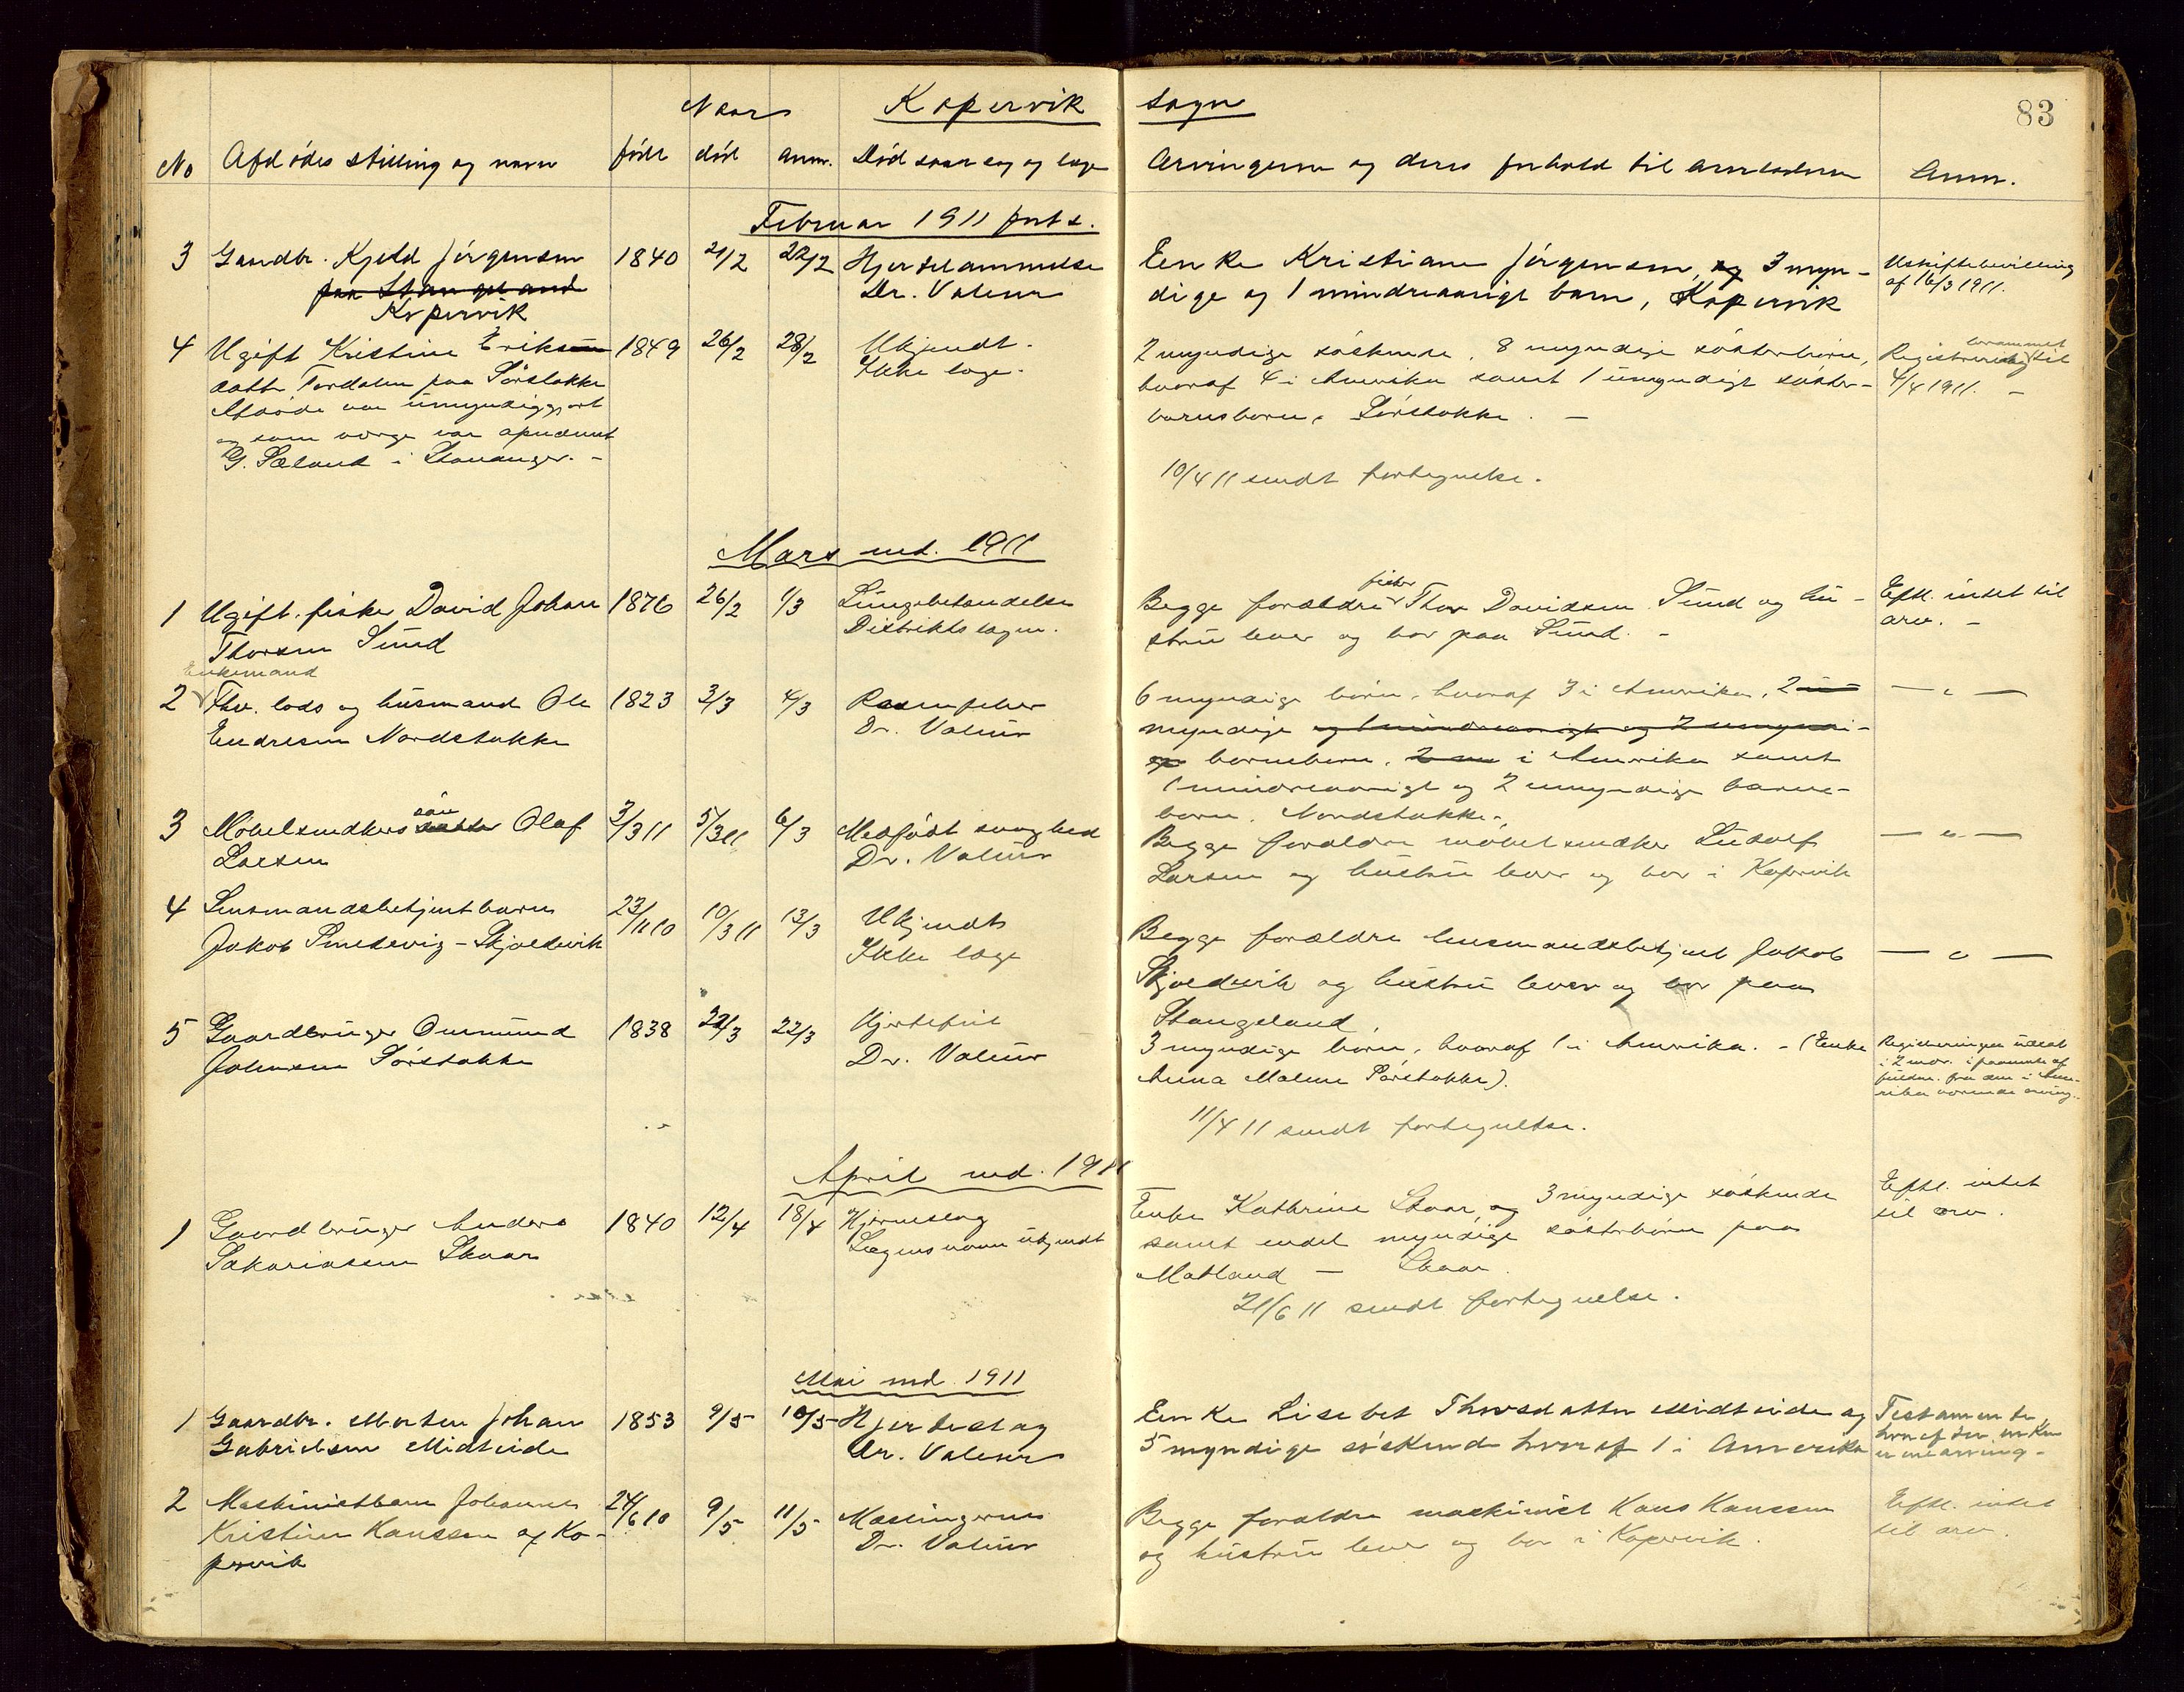 83
Naar
Kopervik sogn
No Afdødes stilling og navn født død anm. Dødsaarsag og læge Arvingerne og deres forhold til arveladeren Anm.
Februar 1911 forts.
3 Gaardbr. Kjeld Jørgensen 1840 21/2 22/2 Hjertelammelse Enke Kristiane Jørgensen, og 3 myn- Uskiftebevilling
paa Stangeland Dr. Valeur dige og 1 mindreaarigt barn, Kopervik af 16/3 1911.
Kopervik
4 Ugift Kristine Eriks 1849 26/2 28/2 Ukjendt. 2 myndige søskende, 8 myndige søsterbørn, Registrering berammet til
datter Tordalen paa Sørstokke Ikke læge. hvoraf 4 i Amerika samt 1 umyndigt søster- 4/4 1911. -
Afdøde var umyndiggjort barnsbarn, Sørstokke. -
og som værge var opnævnt
G. Sæland i Stavanger. -
10/4 11 sendt fortegnelse.
Mars md. 1911
1 Ugift. fisker David Johan 1876 26/2 1/3 Lungebetændelse Begge forældre fisker Thor Davidsen Sund og hu- Eftl. intet til
Thorsen Sund Distriktslægen. stru lever og bor paa Sund. - arv. -
Enkemand
2 Fhv. lods og husmand Ole 1823 3/3 4/3 Rosenfeber 6 myndige børn, hvoraf 3 i Amerika, 2 u — " —
Endresen Nordstokke Dr. Valeur myndige og 1 mindreaarigt og 2 umyndi-
ge barnebørn, i Amerika samt
1 mindreaarigt og 2 umyndige barne-
børn. Nordstokke.
3 Møbelsnedkers datter søn Olaf 3/3 11 5/3 11 6/3 Medfødt svaghed Begge forældre møbelsnedker Ludolf — " —
Larsen Dr. Valeur Larsen og hustru lever og bor i Kopervik
4 Lensmandsbetjent barn 23/11 10 10/3 11 13/3 Ukjendt Begge forældre lensmandsbetjent Jakob — " —
Jakob Smedsvig-Skjoldevik Ikke læge Skjoldevik og hustru lever og bor paa
Stangeland.
5 Gaardbruger Omund 1838 22/3 Hjertefeil 3 myndige børn, hvoraf 1 i Amerika. - (Enke Registreringen udsat
Johnsen Sørstokke Dr. Valeur Anna Malene Sørstokke). i 2 mdr. i paavente af
fuldm. fra den i Ame-
rika værende arving.
11/4 11 sendt fortegnelse.
April md. 1911
1 Gaardbruger Anders 1840 12/4 18/4 Hjerneslag Enke Kathrine Skaar og 3 myndige søskende Eftl. intet
Sakariasen Skaar Lægens navn ukjendt samt endel myndige søsterbørn paa til arv.
Matland — Skaar.
21/6 11 sendt fortegnelse.
Mai md. 1911
1 Gaardbr. Morten Johan 1853 9/5 10/5 Hjerteslag Enke Lisebet Thorsdatter Midteide og Testamente
Gabrielsen Midteide Dr. Valeur 5 myndige søskend hvoraf 1 i Amerika hvoref
2 Maskinistbarn Johannes 24/6 10 9/5 11/5 Mæslingerne Begge forældre maskinist Hans Hanssen Eftl. intet
Kristian Hanssen af Ko- Dr. Valeur og hustru lever og bor i Kopervik. til arv.
pervik